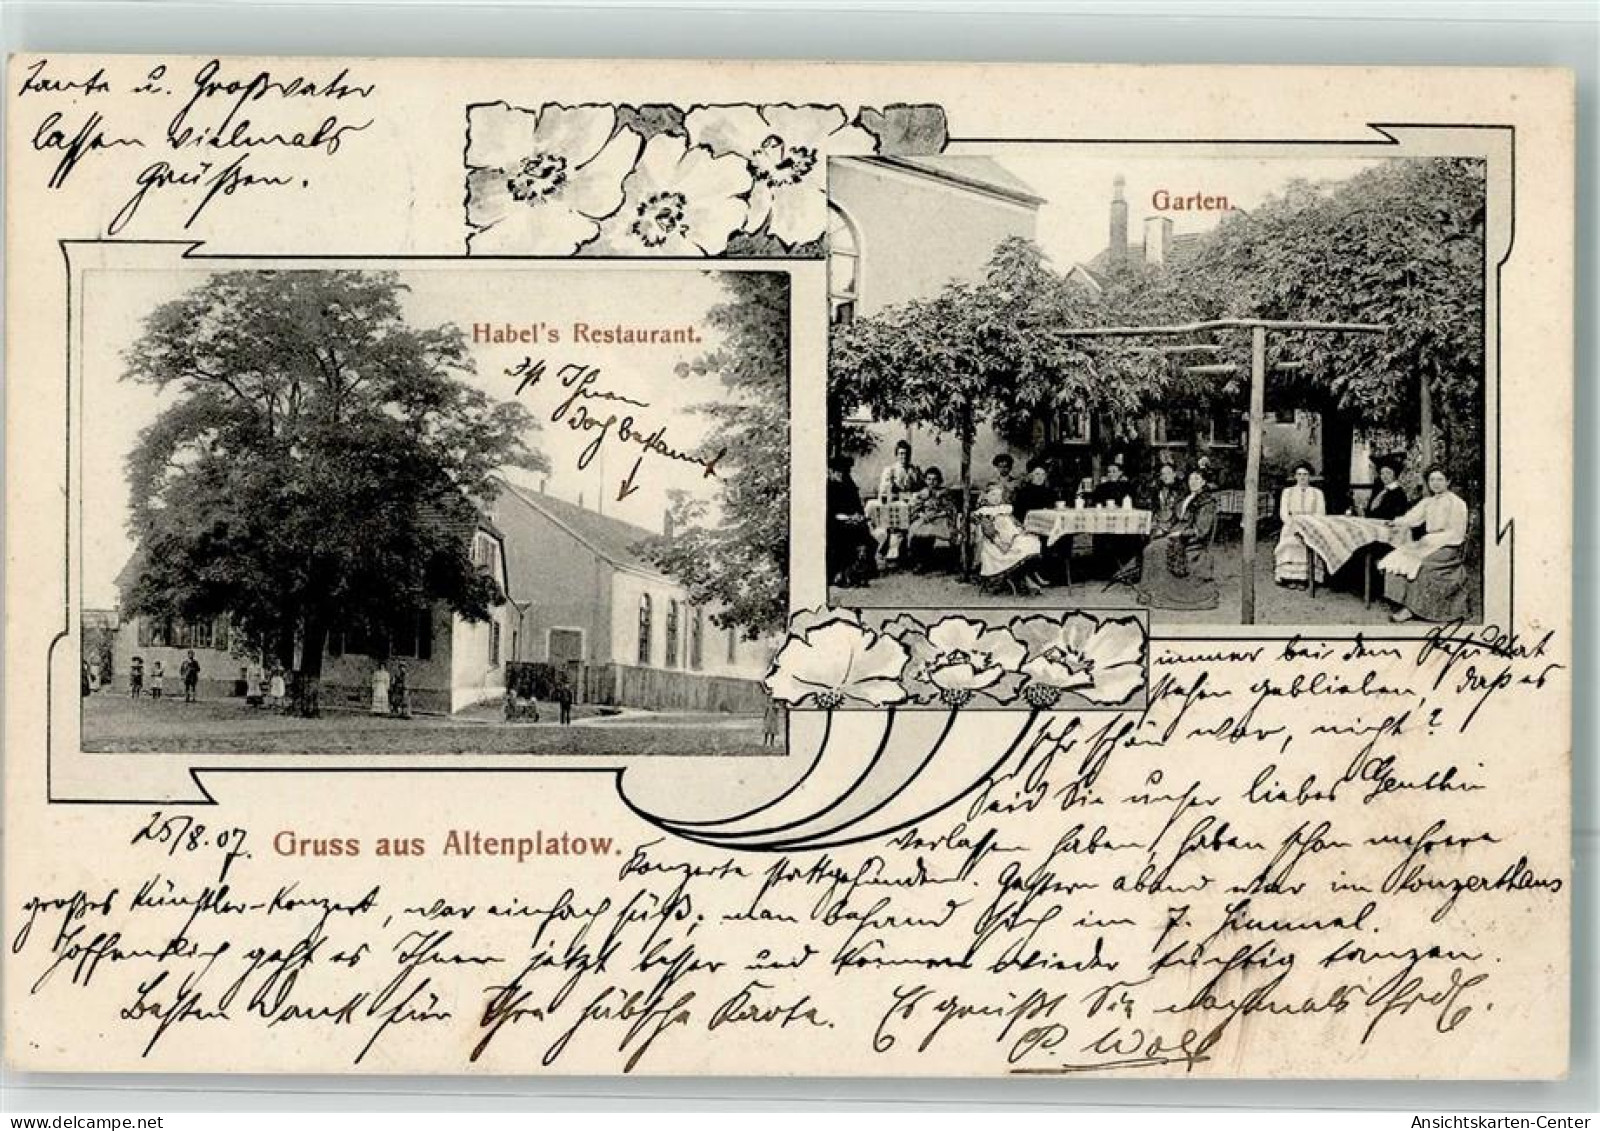 Tante u. Großvater
lassen vielmals
Grüßen.
Garten.
Habel's Restaurant.
Ist Ihnen
doch bekannt
immer bei dem Resultat
stehen geblieben, daß es
sehr schön war, nicht?
Seid Sie unser liebes Genthin
verlassen haben, haben schon mehrere
25/8.07. Gruss aus Altenplatow.
Konzerte stattgefunden. Gestern abend war im Konzerthaus
großes Künstler-Konzert, war einfach süß; man befand sich im 7. Himmel.
Hoffentlich geht es Ihnen jetzt besser und können wieder tüchtig tanzen.
Besten Dank für Ihre hübsche Karte. Es grüßt Sie nochmals Frdl.
P. Wolf
Ansichtskarten-Center